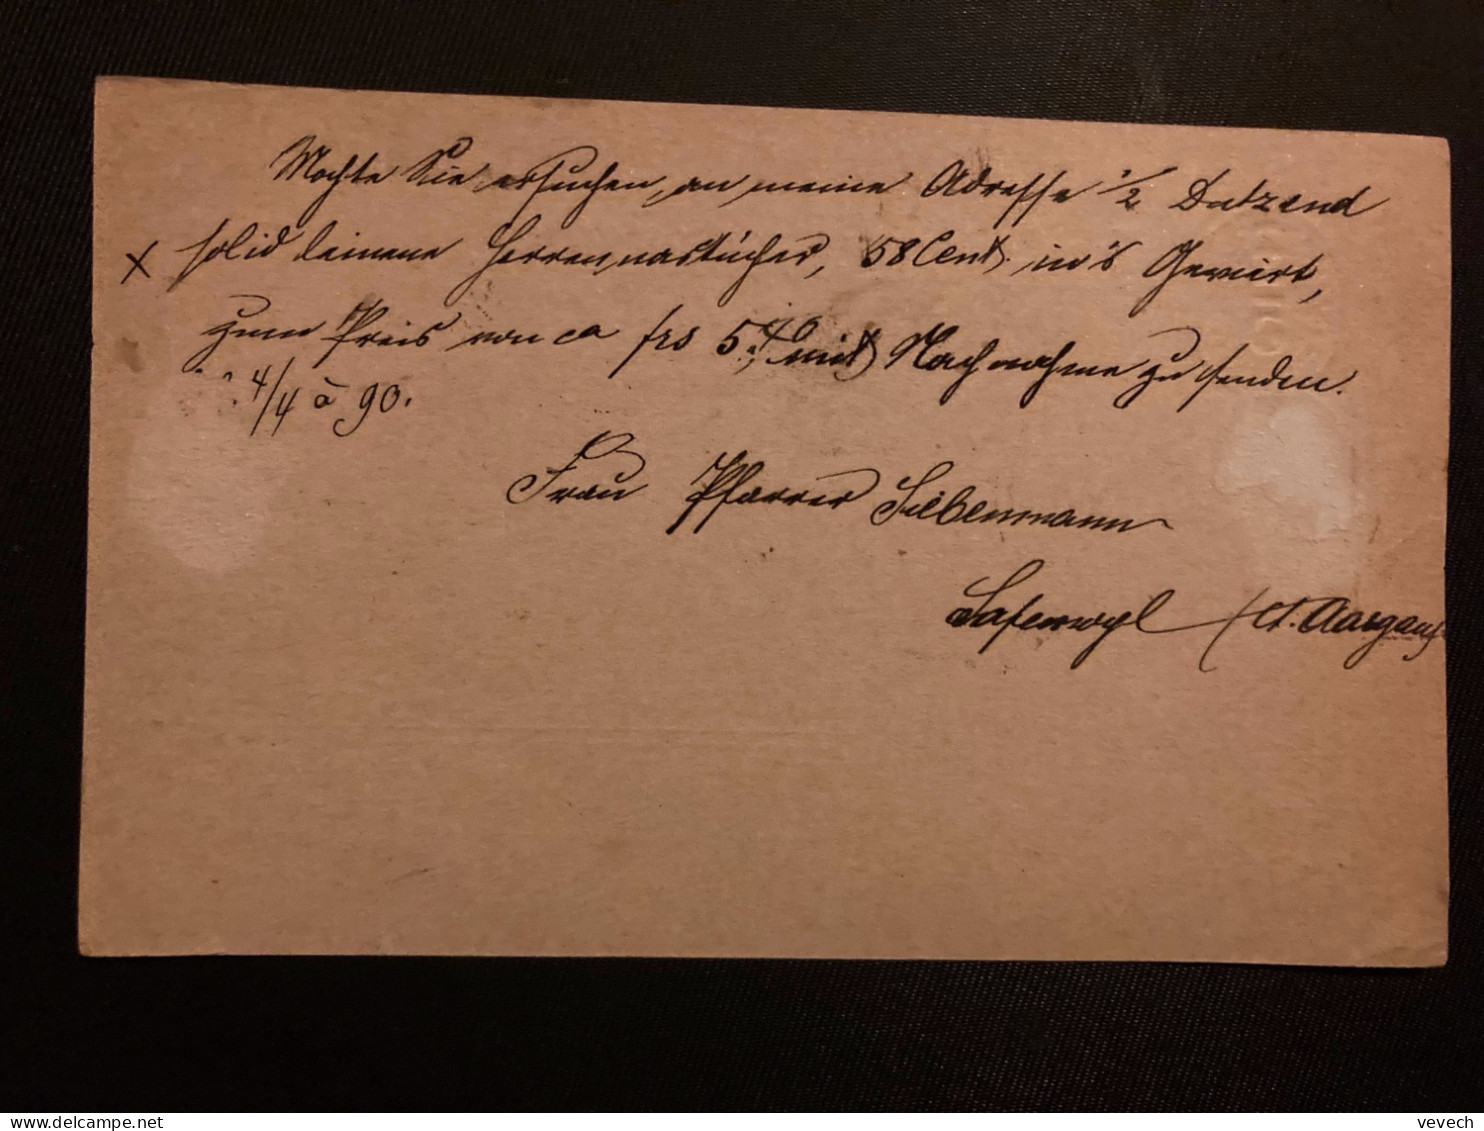 Möchte Sie ersuchen, an meine Adresse 1/2 Dutzend
x solid leinene Herrennastücher, 58 Cent. in's Geviert,
zum Preis von ca frs 5.40 mit Nachnahme zu senden.
4/4 à 90.
Frau Pfarrer Siebenmann
Safenwyl (Ct. Aargau)
vevech